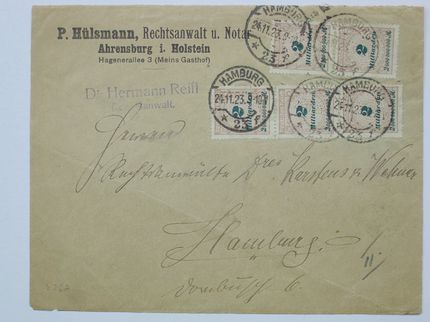 P. Hülsmann, Rechtsanwalt u. Notar
Ahrensburg i. Holstein
Hagenerallee 3 (Meins Gasthof)
Dr. Hermann Reifl
Rechtsanwalt.
HAMBURG
24.11.23.
23 f
HAMBURG
24.11.23.9-10
23 f
HAMBURG
24.11.23.
23
2
Milliarden
2
Milliarden
2
Milliarden
2
Milliarden
2
Milliarden
Herren
Rechtsanwälte Dres. Karstens &
Hamburg
11.
Dornbusch 6.